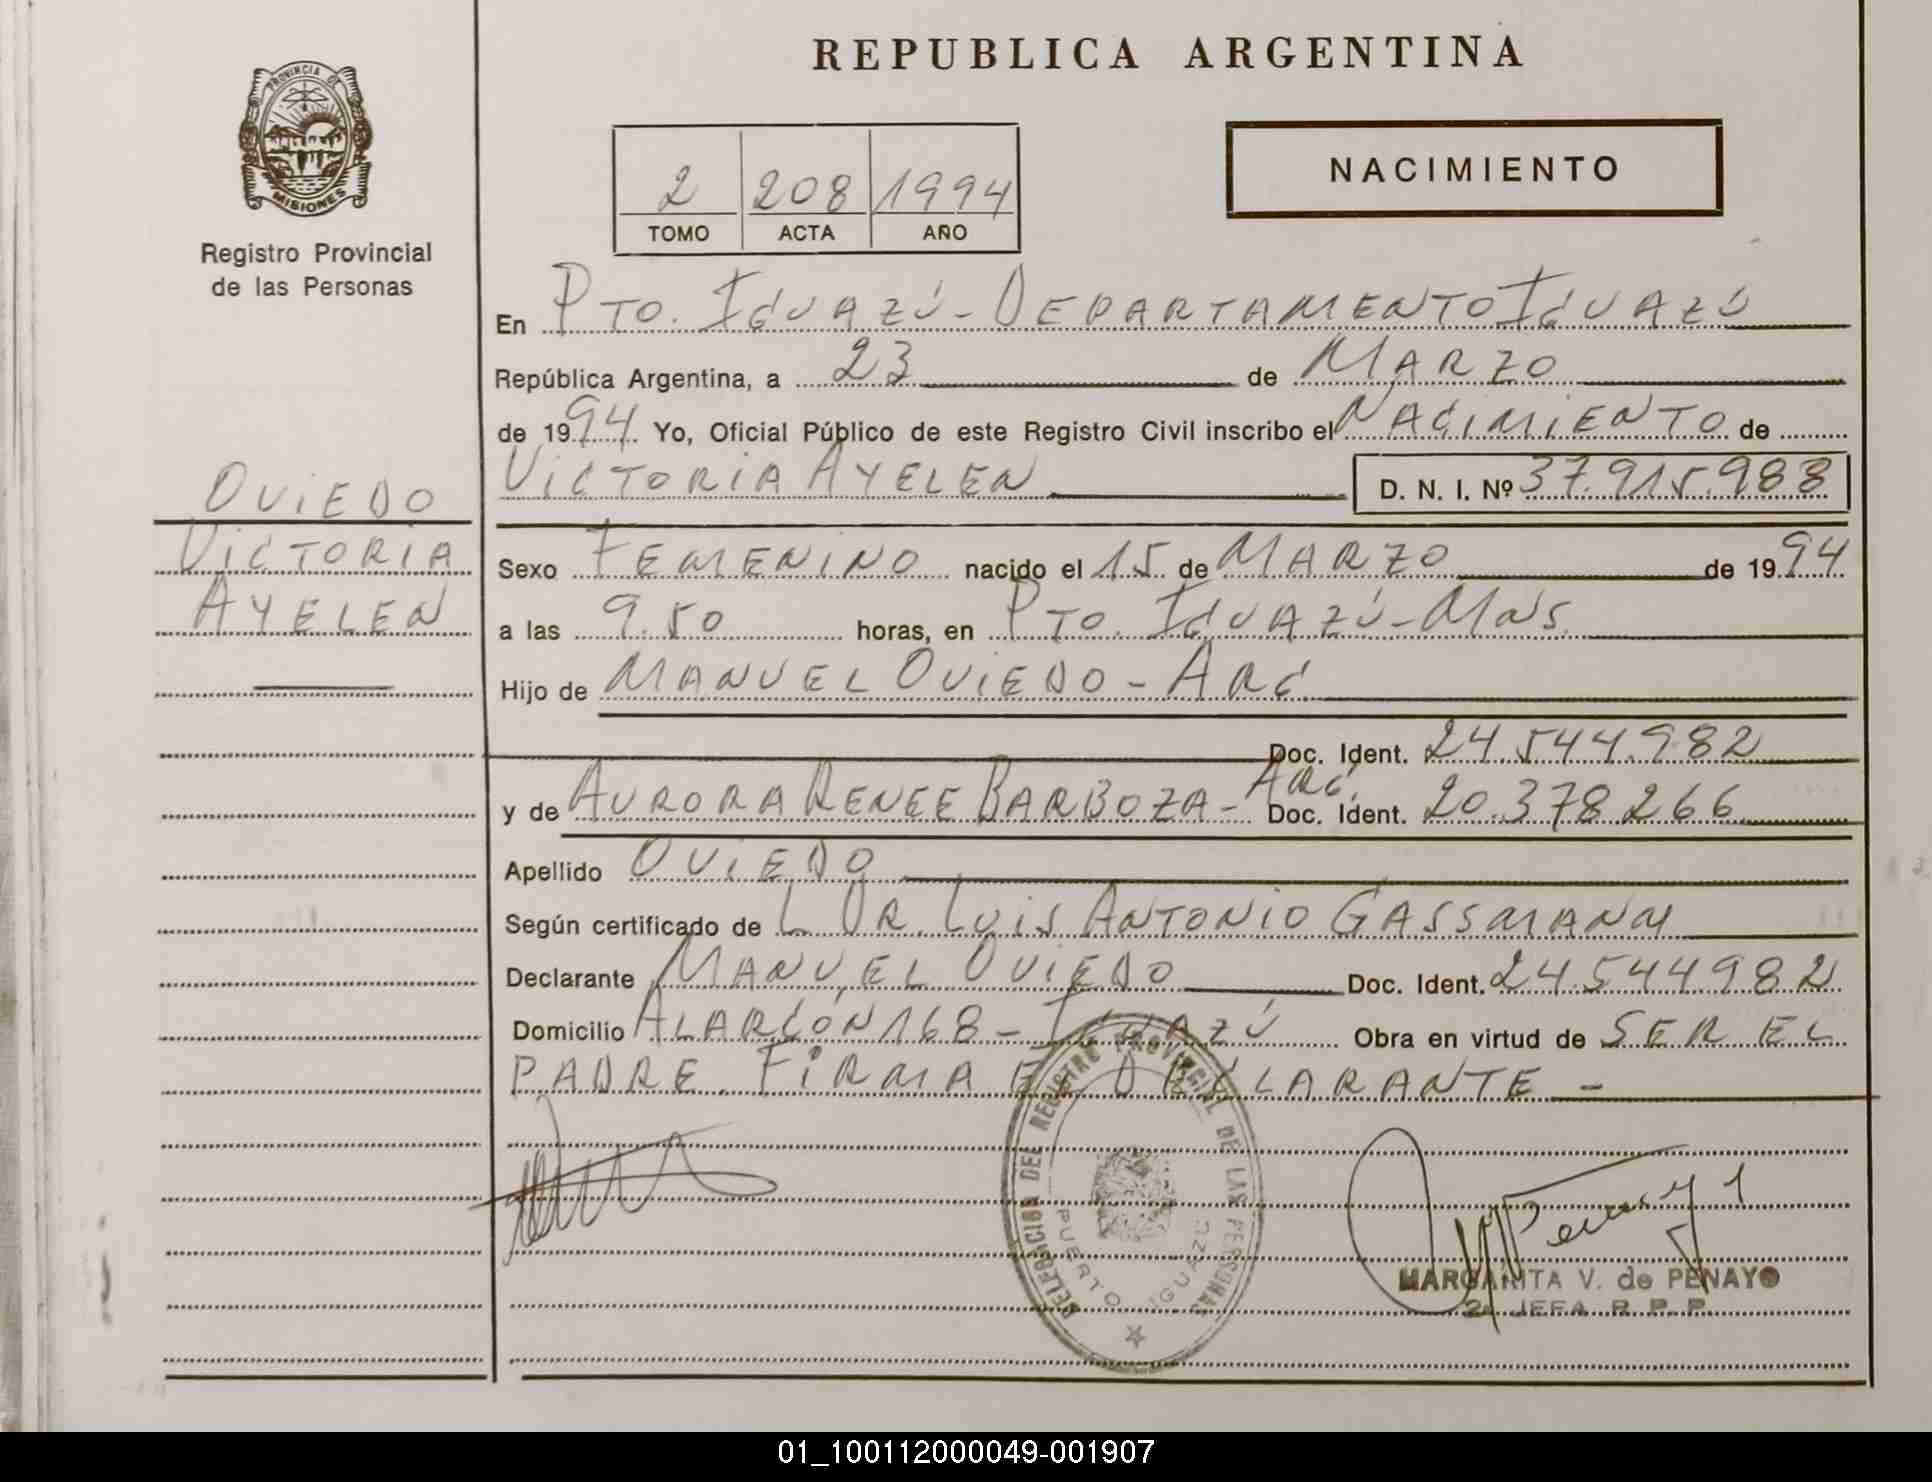 REPUBLICA ARGENTINA
PROVINCIA DE
MISIONES
Registro Provincial
de las Personas
2 208 1994
TOMO ACTA AÑO
NACIMIENTO
En PTO. IGUAZÚ - DEPARTAMENTO IGUAZÚ
República Argentina, a 23 de MARZO
de 1994 Yo, Oficial Público de este Registro Civil inscribo el NACIMIENTO de
VICTORIA AYELEN D. N. I. Nº 37.915.988
OVIEDO
VICTORIA
AYELEN
Sexo FEMENINO nacido el 15 de MARZO de 1994
a las 9.50 horas, en PTO. IGUAZÚ - MNS.
Hijo de MANUEL OVIEDO - ARG
Doc. Ident. 24.544.982
y de AURORA RENEE BARBOZA - ARG. Doc. Ident. 20.378.266
Apellido OVIEDO
Según certificado de L DR. LUIS ANTONIO GASSMANN
Declarante MANUEL OVIEDO Doc. Ident. 24.544982
Domicilio ALARCÓN 168 - IGUAZÚ Obra en virtud de SER EL
PADRE. FIRMA EL DECLARANTE -
DELEGACION DEL REGISTRO PROVINCIAL DE LAS PERSONAS
PUERTO IGUAZU
MARGARITA V. de PENAYO
2a JEFA R. P. P.
01_100112000049-001907